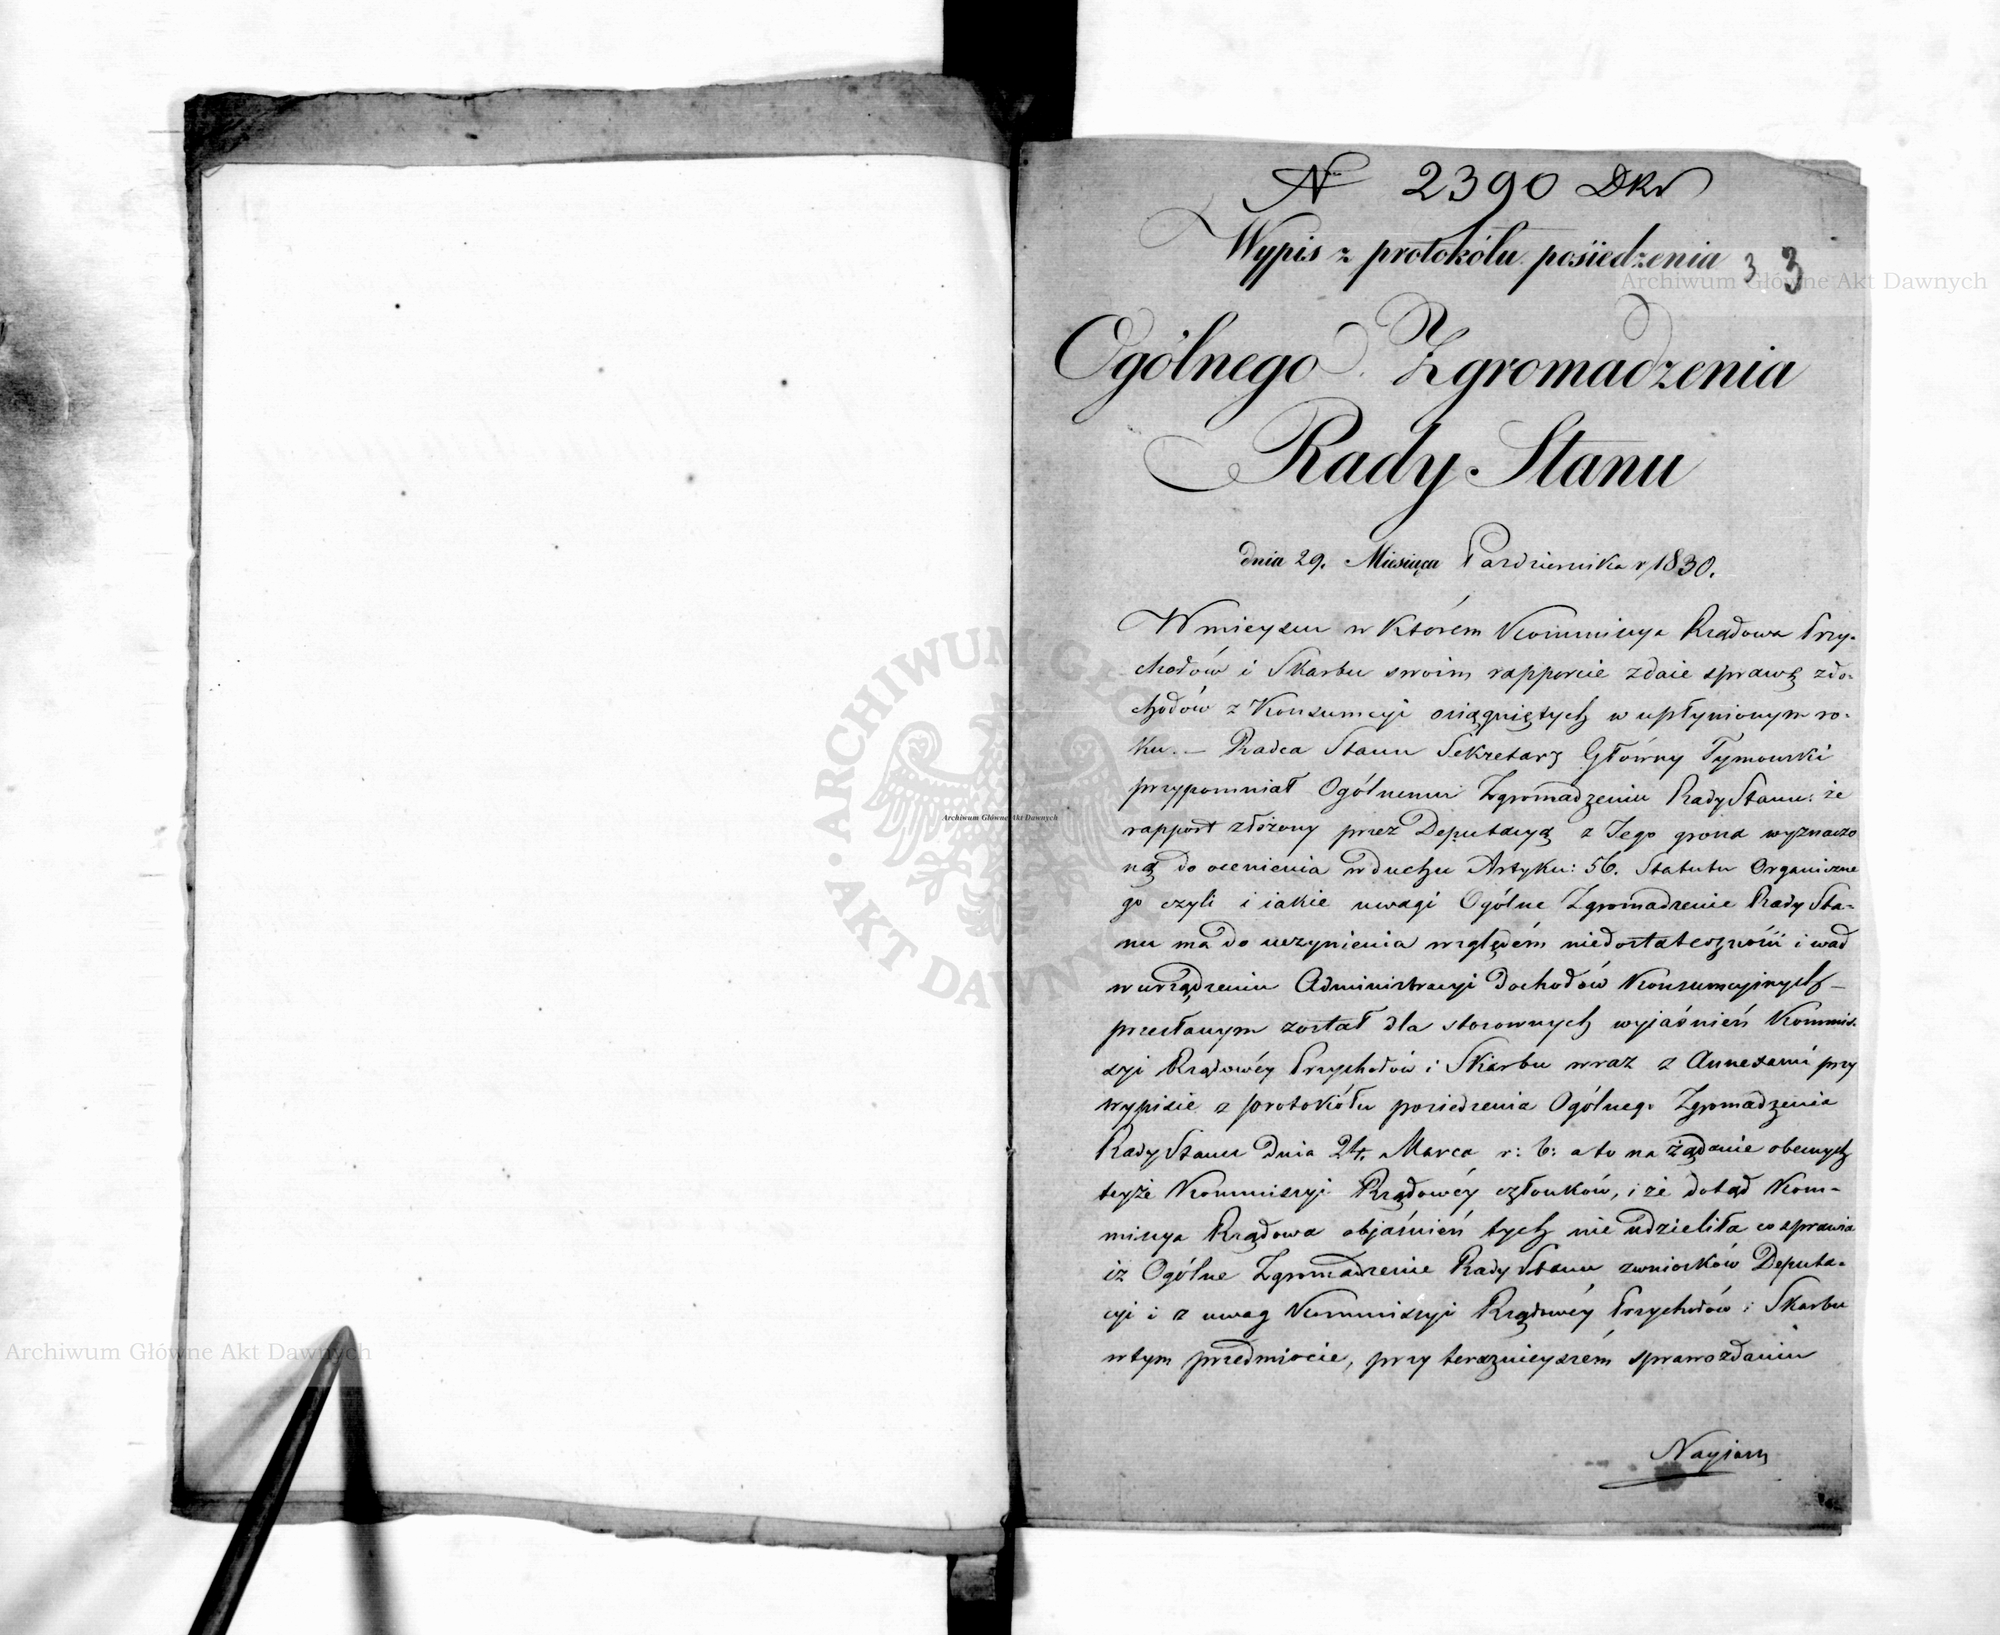 N 2390 DKr
Wypis z protokólu posiedzenia 3 3
Ogólnego Zgromadzenia
Rady Stanu
dnia 29. Miesiąca Pazdziernika r 1830.
W mieyscu w którém Kommissya Rządowa Przy-
chodów i Skarbu swoim rapporcie zdaie sprawę zdo-
chodów z Konsumcyi osiągniętych w upłynionym ro-
ku. – Radca Stanu Sekretarz Główny Tymowski
przypomniał Ogólnemu Zgromadzeniu Rady Stanu: że
rapport złożony przez Deputacyą z Jego grona wyznaczo
ną do ocenienia w duchu Artyku: 56. Statutu Organiczne
go czyli i iakie uwagi Ogólne Zgromadzenie Rady Sta-
nu ma do uczynienia względém niedostateczności i wad
w urządzeniu Administracyi dochodów Konsumcyinych –
przesłanym został dla stosownych wyjaśnień Kommis-
syi Rządowéy Przychodów i Skarbu wraz z Annexami przy
wypisie z protokółu posiedzenia Ogólnego Zgromadzenia
Rady Stanu dnia 24. Marca r: b: a to na żądanie obecnych
teyże Kommissyi Rządowéy członków, i że dotąd Kom-
missya Rządowa objaśnień tych nie udzieliła co sprawia
iż Ogólne Zgromadzenie Rady Stanu zwniosków Deputa-
cyi i z uwag Kommissyi Rządowéy Przychodów i Skarbu
w tym przedmiocie, przy teraznieyszém sprawozdaniu
Nayjasn
Archiwum Główne Akt Dawnych
Archiwum Główne Akt Dawnych
Archiwum Główne Akt Dawnych
ARCHIWUM GŁÓWNE AKT DAWNYCH